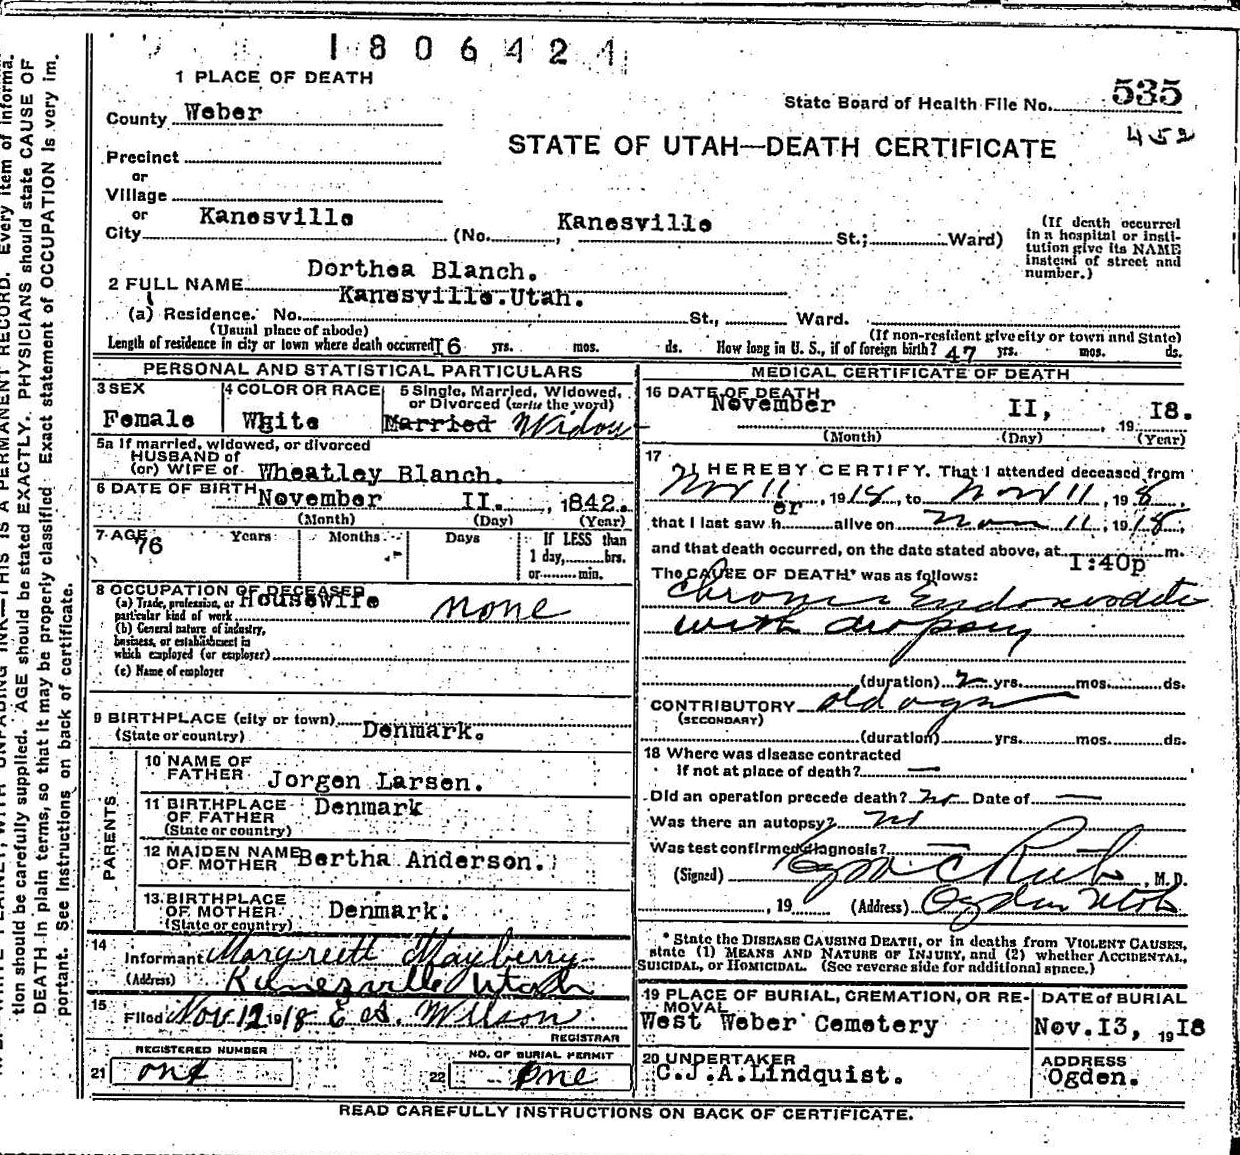 1806424
1 PLACE OF DEATH
State Board of Health File No. 535
County Weber
452
STATE OF UTAH—DEATH CERTIFICATE
Precinct
or
Village
or
City Kanesville (No. , Kanesville St.; Ward)
(If death occurred
in a hospital or insti-
tution give its NAME
instead of street and
number.)
2 FULL NAME Dorthea Blanch.
Kanesville.Utah.
(a) Residence. No. St., Ward.
(Usual place of abode) (If non-resident give city or town and State)
Length of residence in city or town where death occurred I6 yrs. mos. ds. How long in U. S., if of foreign birth? 47 yrs. mos. ds.
PERSONAL AND STATISTICAL PARTICULARS
3 SEX
Female
4 COLOR OR RACE
White
5 Single, Married, Widowed,
or Divorced (write the word)
Married Widow
5a If married, widowed, or divorced
HUSBAND of
(or) WIFE of Wheatley Blanch.
6 DATE OF BIRTH November II. , 1842.
(Month) (Day) (Year)
7 AGE Years Months Days If LESS than
76 1 day, hrs.
or min.
8 OCCUPATION OF DECEASED
(a) Trade, profession, or
particular kind of work Housewife none
(b) General nature of industry,
business, or establishment in
which employed (or employer)
(c) Name of employer
9 BIRTHPLACE (city or town)
(State or country) Denmark.
PARENTS
10 NAME OF
FATHER Jorgen Larsen.
11 BIRTHPLACE
OF FATHER Denmark
(State or country)
12 MAIDEN NAME
OF MOTHER Bertha Anderson.
13 BIRTHPLACE
OF MOTHER Denmark.
(State or country)
14
Informant Margreatt Mayberry
(Address) Kanesville Utah
15
Filed Nov 12 1918 E as. Wilson
REGISTRAR
REGISTERED NUMBER
21 one
NO. OF BURIAL PERMIT
22 One
MEDICAL CERTIFICATE OF DEATH
16 DATE OF DEATH
November II, 19 I8.
(Month) (Day) (Year)
17
I HEREBY CERTIFY. That I attended deceased from
Nov 11, 1918, to Nov 11, 198
that I last saw her alive on Nov 11, 1918,
and that death occurred, on the date stated above, at I:40p m.
The CAUSE OF DEATH* was as follows:
Chronic Endocarditis
with dropsy
(duration) 2 yrs. mos. ds.
CONTRIBUTORY old age
(SECONDARY)
(duration) yrs. mos. ds.
18 Where was disease contracted
If not at place of death? —
Did an operation precede death? no Date of —
Was there an autopsy? no
Was test confirmed diagnosis? —
(Signed) , M. D.
, 19 (Address) Ogden Utah
* State the DISEASE CAUSING DEATH, or in deaths from VIOLENT CAUSES,
state (1) MEANS AND NATURE OF INJURY, and (2) whether ACCIDENTAL,
SUICIDAL, or HOMICIDAL. (See reverse side for additional space.)
19 PLACE OF BURIAL, CREMATION, OR RE-
MOVAL
West Weber Cemetery
DATE of BURIAL
Nov.I3, 19I8
20 UNDERTAKER
C.J.A.Lindquist.
ADDRESS
Ogden.
READ CAREFULLY INSTRUCTIONS ON BACK OF CERTIFICATE.
THIS IS A PERMANENT RECORD. Every item of informa-
tion should be carefully supplied. AGE should be stated EXACTLY. PHYSICIANS should state CAUSE OF
DEATH in plain terms, so that it may be properly classified. Exact statement of OCCUPATION is very im-
portant. See instructions on back of certificate.